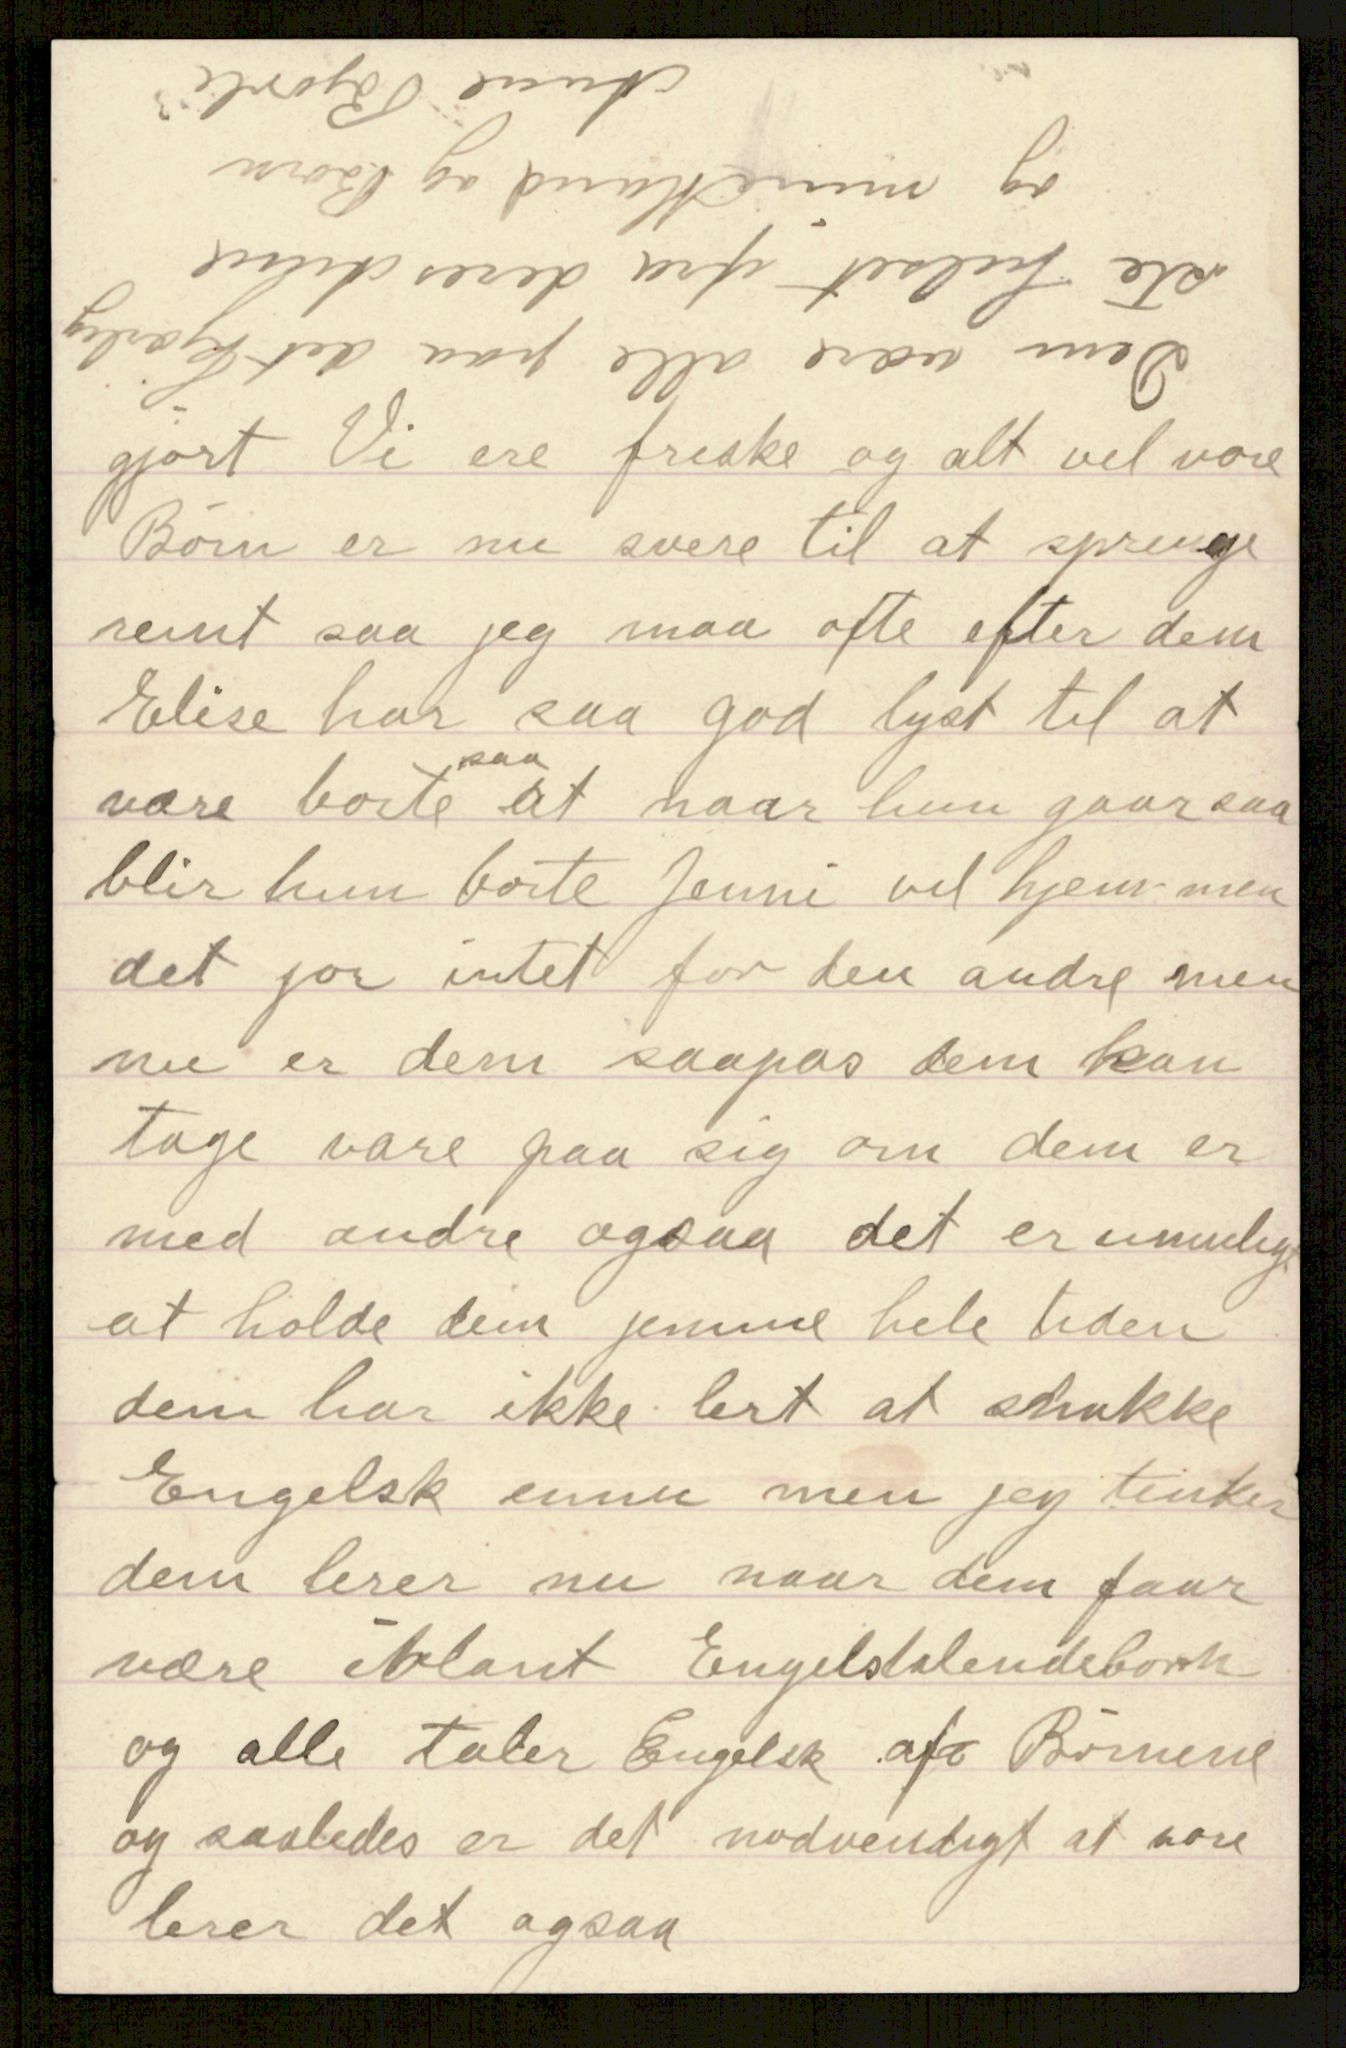 gjort Vi ere friske og alt vel vore
Børn er nu svere til at sprenge
remt saa jeg maa ofte efter dem
Elise har saa god lyst til at
være borte saa at naar hun gaar saa
blir hun borte Jenni vil hjem men
det jor intet for den andre men
nu er dem saapas dem kan
tage vare paa sig om dem er
med andre ogsaa det er umuligt
at holde dem jemme hele tiden
dem har ikke lert at snakke
Engelsk ennu men jeg tenker
dem lerer nu naar dem faar
være iblant Engelstalendeborn
og alle taler Engelsk af Børnene
og saaledes er det nodvendigt at vore
lerer det ogsaa
Dem være alle paa det kjærlig
ste hilset fra deres Anne
og min Mand og Børn
Anne Bjorli